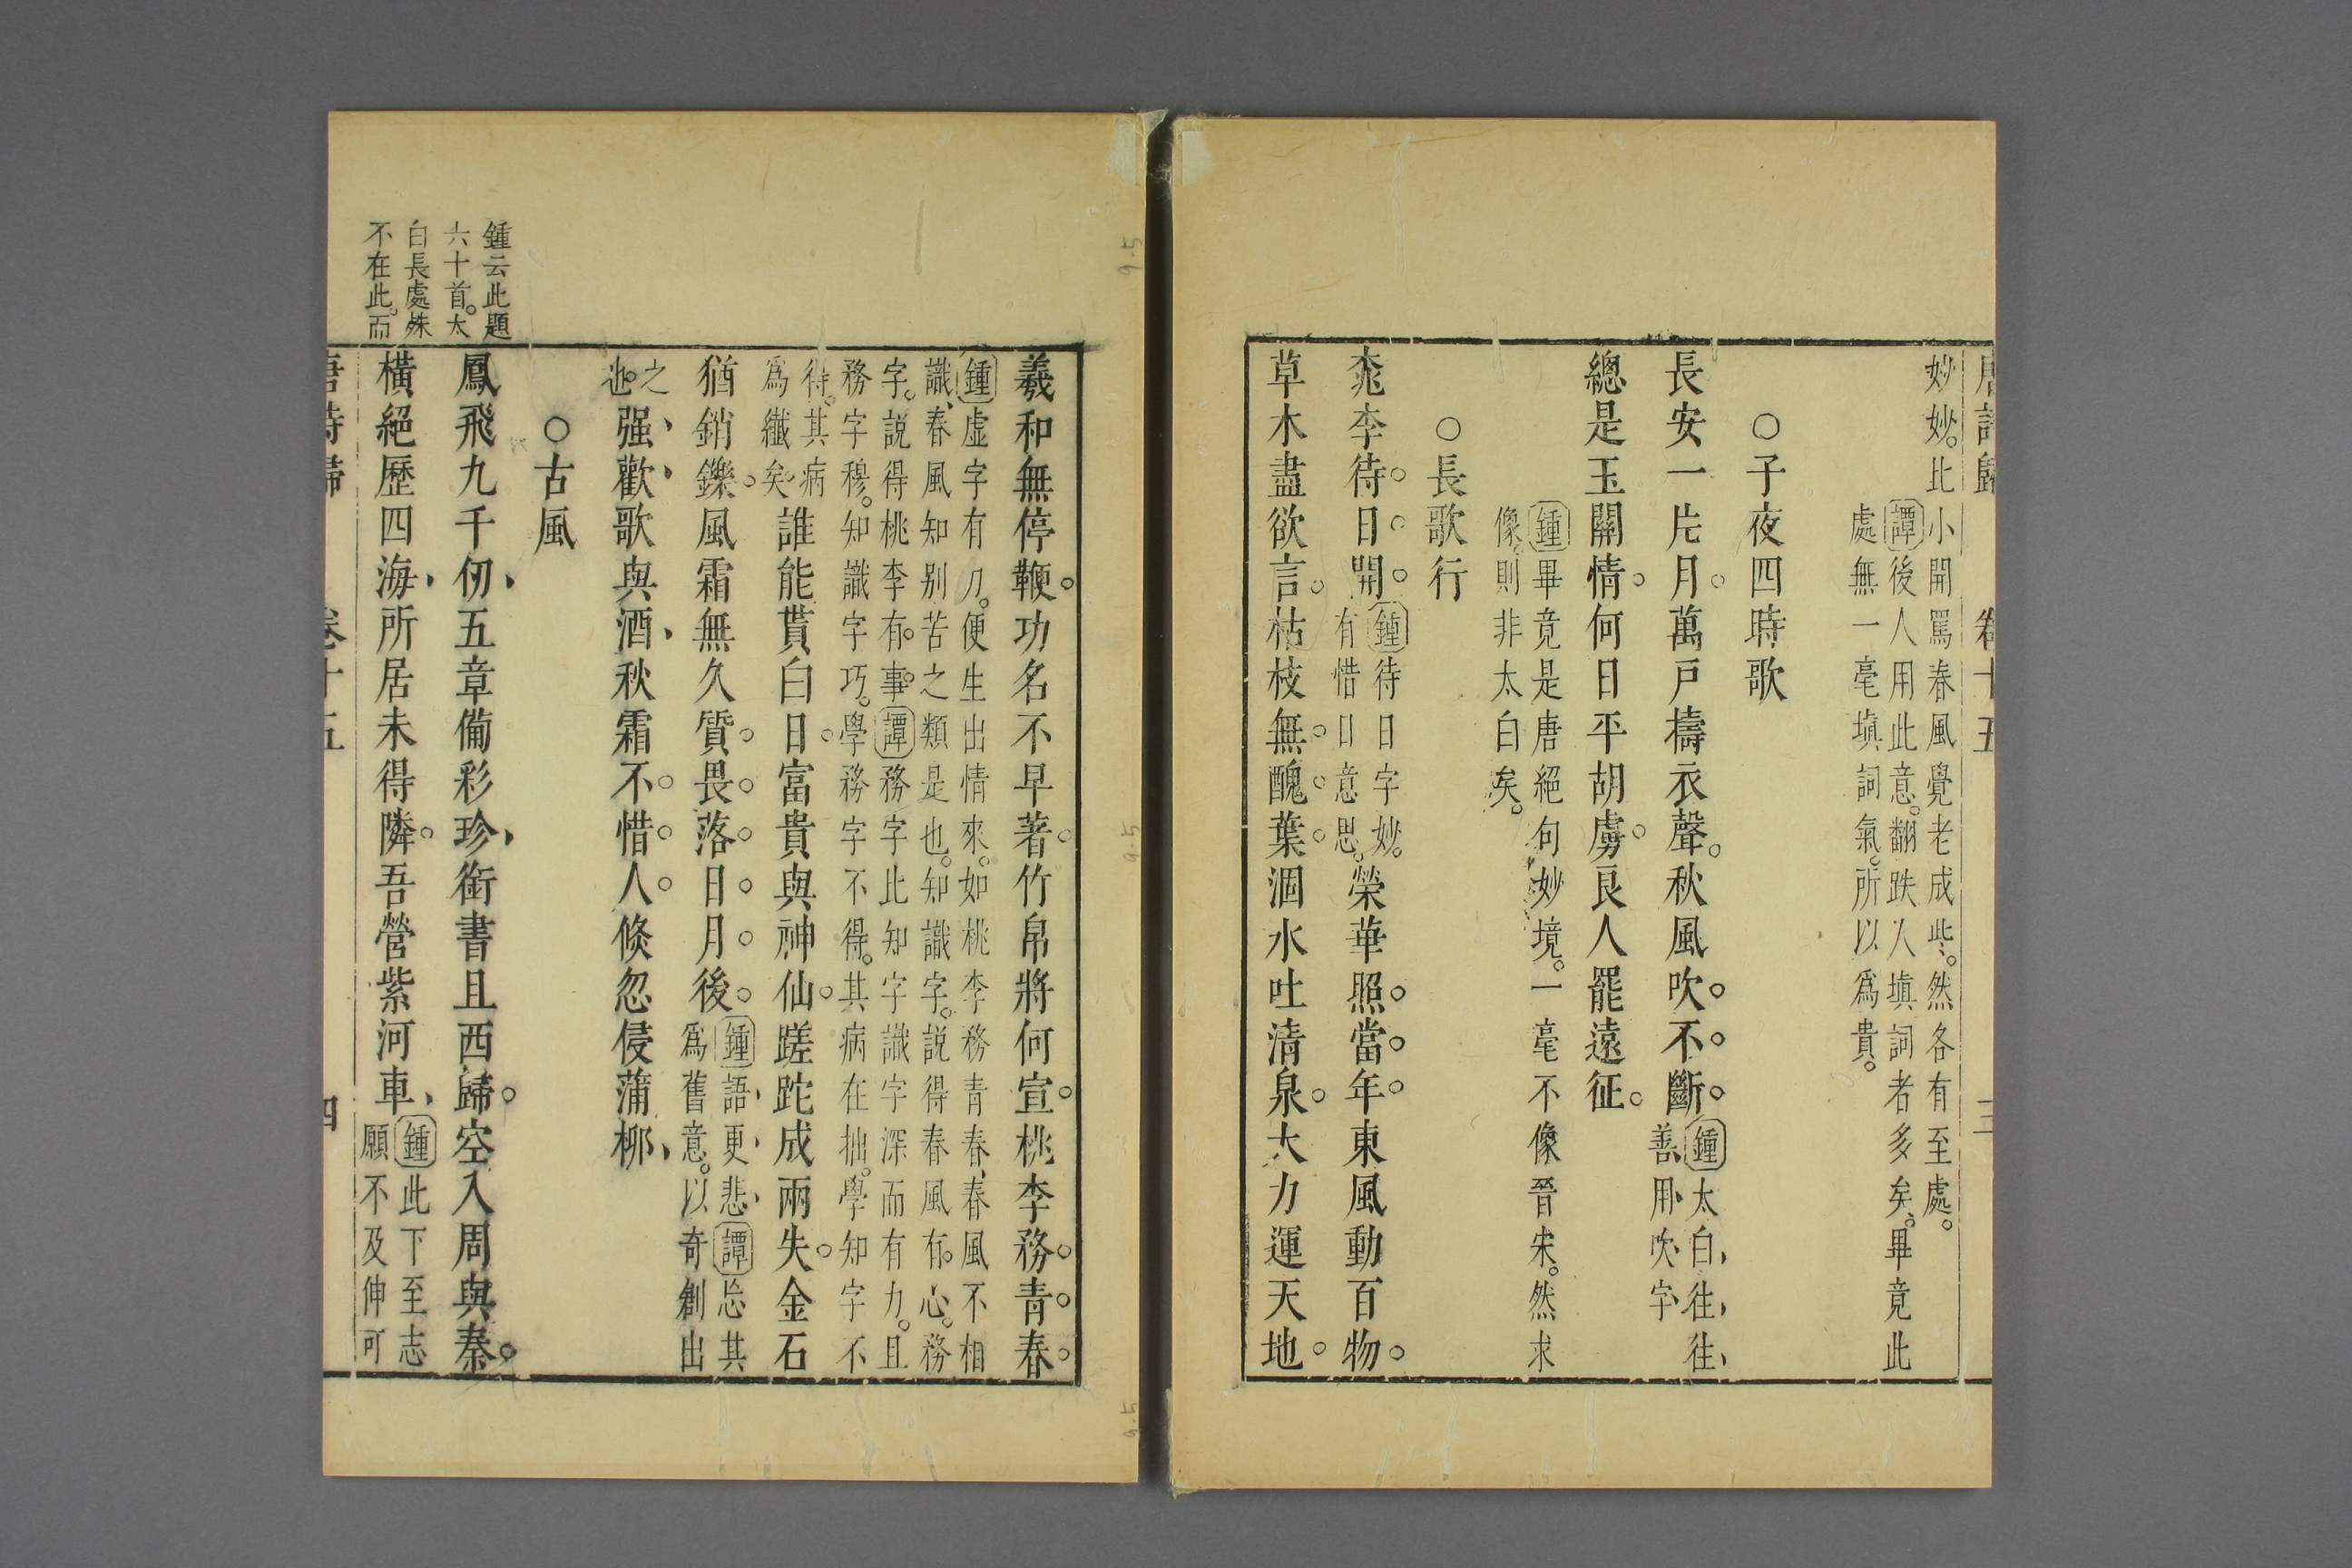 唐詩歸 卷十五 三
妙妙。此小開罵春風覺老成些。然各有至處。
譚後人用此意。翻跌入填詞者多矣。畢竟此
處無一毫填詞氣。所以爲貴。
○子夜四時歌
長安一片月。萬戸擣衣聲。秋風吹不斷。鍾太白往往
善用吹字
總是玉關情。何日平胡虜。良人罷遠征。
鍾畢竟是唐絕句妙境。一毫不像晉宋。然求
像。則非太白矣。
○長歌行
桃李待日開。鍾待日字妙。
有惜日意思。榮華照當年。東風動百物。
草木盡欲言。枯枝無醜葉。涸水吐清泉。大力運天地。
羲和無停鞭。功名不早著。竹帛將何宣。桃李務青春。
鍾虛字有刀。便生出情來。如桃李務青春、春風不相
識、春風知别苦之類是也。知識字。説得春風有心。務
字。説得桃李有事。譚務字此知字識字深而有力。且
務字穆。知識字巧。學務字不得。其病在拙。學知字不
得。其病
爲纖矣
誰能貰白日。富貴與神仙。蹉跎成兩失。金石
猶銷鑠。風霜無久質。畏落日月後。鍾語更悲譚忘其
爲舊意。以奇創出
之
也。强歡歌與酒、秋霜不惜人。倐忽侵蒲柳、
○古風
鍾云此題
六十首。太
白長處殊
不在此。而
鳳飛九千仞、五章備彩珍、銜書且西歸。空入周與秦。
橫絕歷四海、所居未得隣。吾營紫河車、鍾此下至志
願不及伸可
唐詩歸 卷十五 四